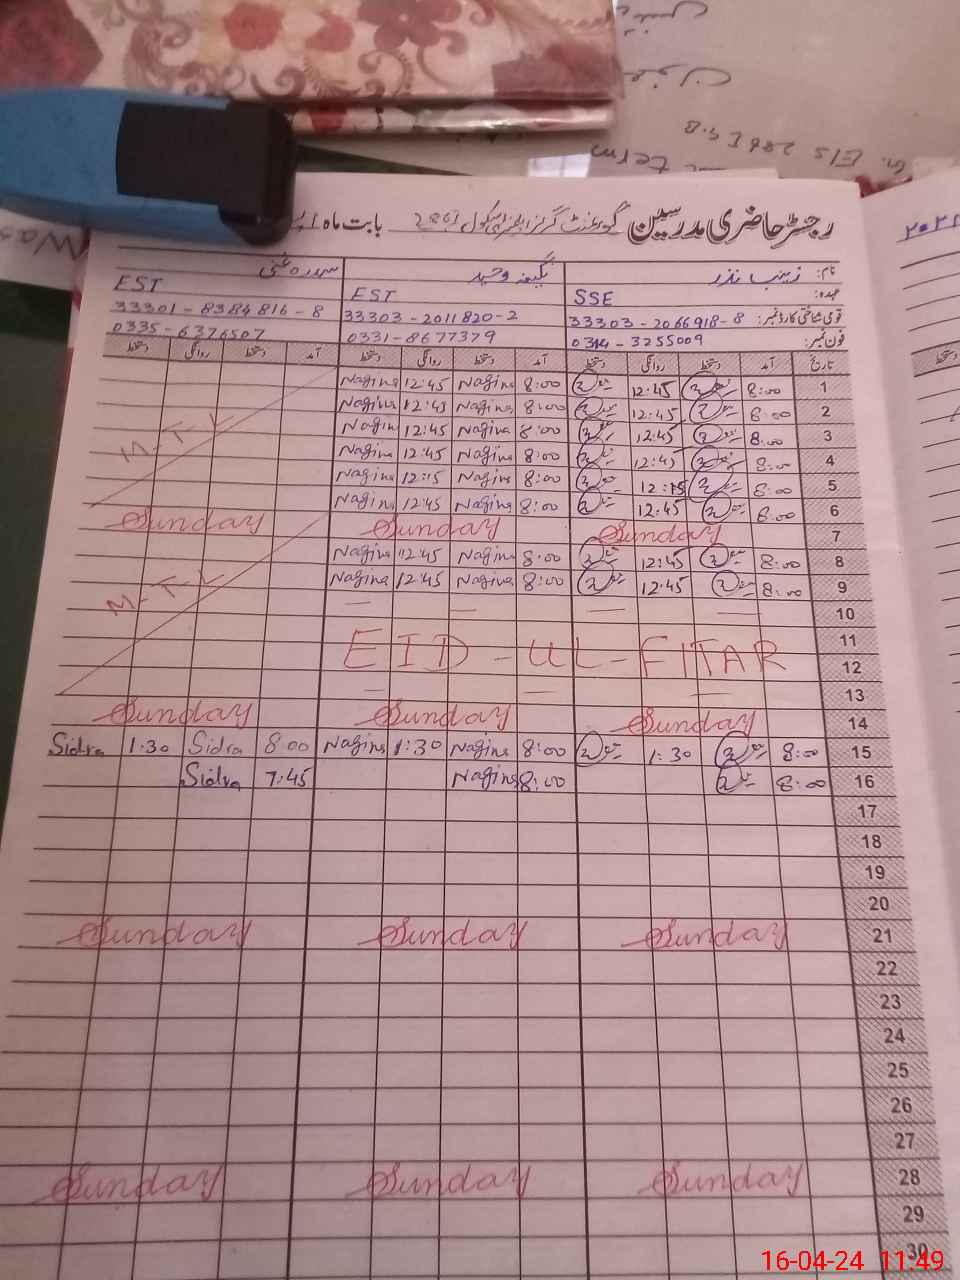 Gr. E/S 286 I G.B
term
رجسٹر حاضری مدرسین گورنمنٹ گرلز ہائی سکول 286 بابت ماہ
نام: زینب نذر نگینہ وحید سدرہ غنی
عہدہ: SSE EST EST
قومی شناختی کارڈ نمبر: 33303-2066918-8 33303-2011820-2 33301-8384816-8
فون نمبر: 0314-3255009 0331-8677379 0335-6376507
تاریخ آمد دستخط روانگی دستخط آمد دستخط روانگی دستخط آمد دستخط روانگی دستخط
1 8:00 12:45 8:00 Nagina 12:45 Nagina
2 8:00 12:45 8:00 Nagina 12:45 Nagina
3 8:00 12:45 8:00 Nagina 12:45 Nagina
4 8:00 12:45 8:00 Nagina 12:45 Nagina M-T-L
5 8:00 12:15 8:00 Nagina 12:15 Nagina
6 8:00 12:45 8:00 Nagina 12:45 Nagina
7 Sunday Sunday Sunday
8 8:00 12:45 8:00 Nagina 12:45 Nagina
9 8:00 12:45 8:00 Nagina 12:45 Nagina M-T-L
10 — — — —
11
EID-UL-FITAR
12
13 — — —
14 Sunday Sunday Sunday
15 8:00 1:30 8:00 Nagina 1:30 Nagina 8:00 Sidra 1:30 Sidra
16 8:00 8:00 Nagina 7:45 Sidra
17
18
19
20
21 Sunday Sunday Sunday
22
23
24
25
26
27
28 Sunday Sunday Sunday
29
30
16-04-24 11:49